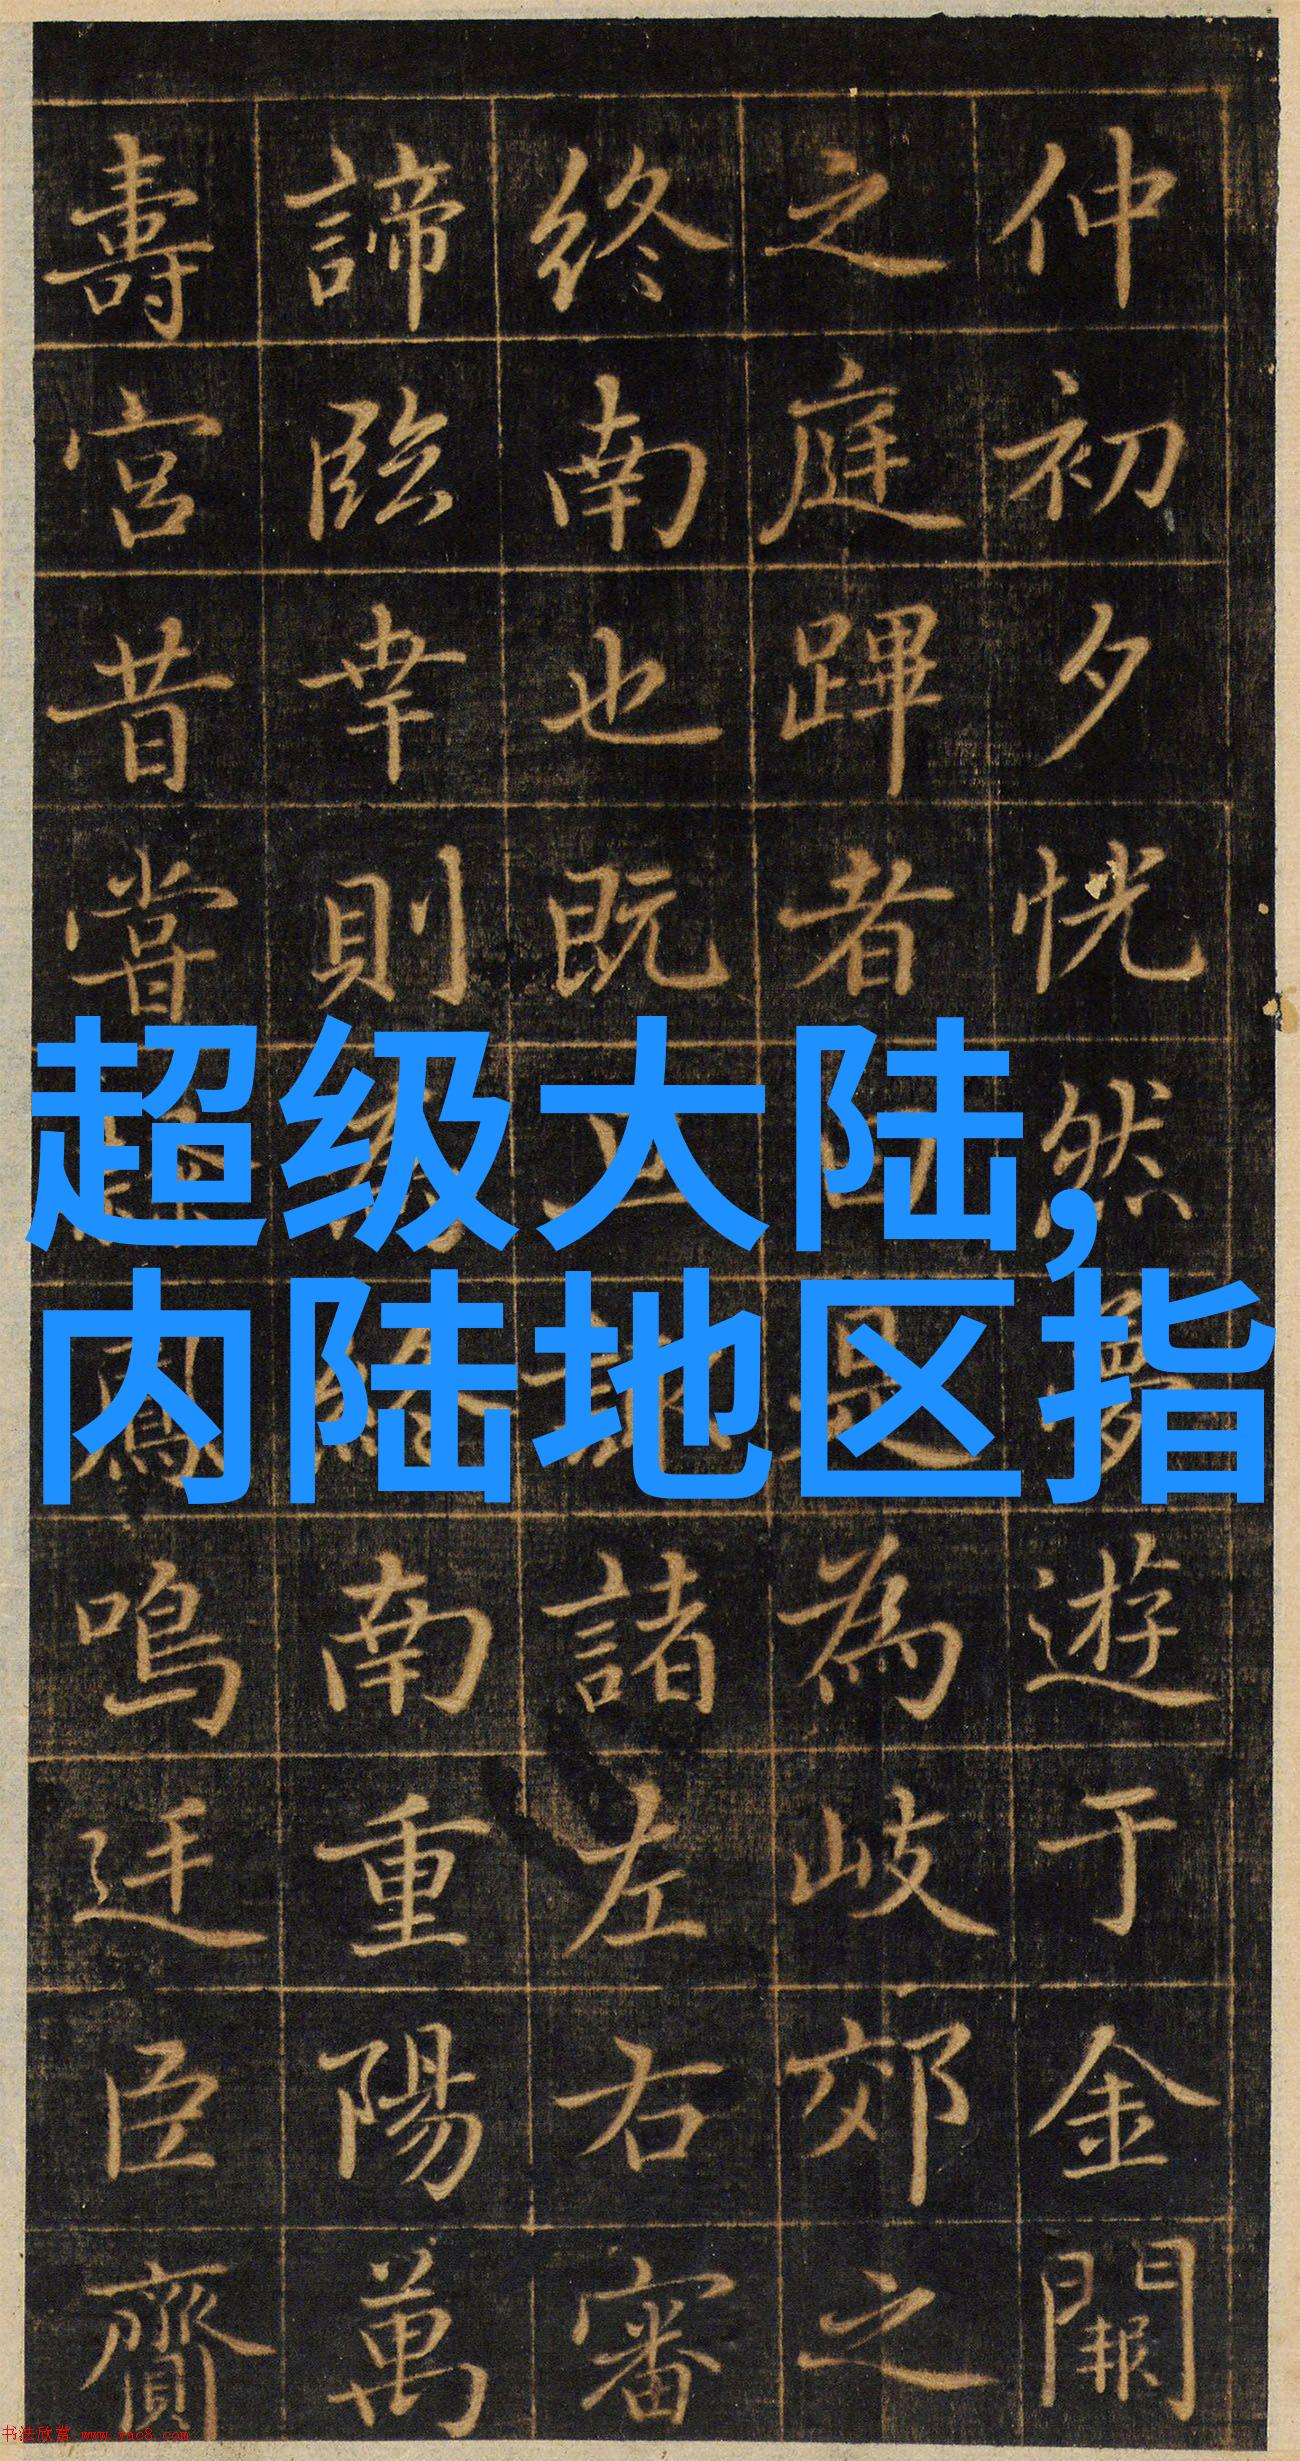 超级大陆,
内陆地区指
仲初夕恍然夢遊于金闕
之庭蹕者為岐郊之
終南也既諸左右審
諦臨幸則南重陽萬
壽宮昔嘗鳳鳴廷臣齎
书法欣赏 www.yac8.com